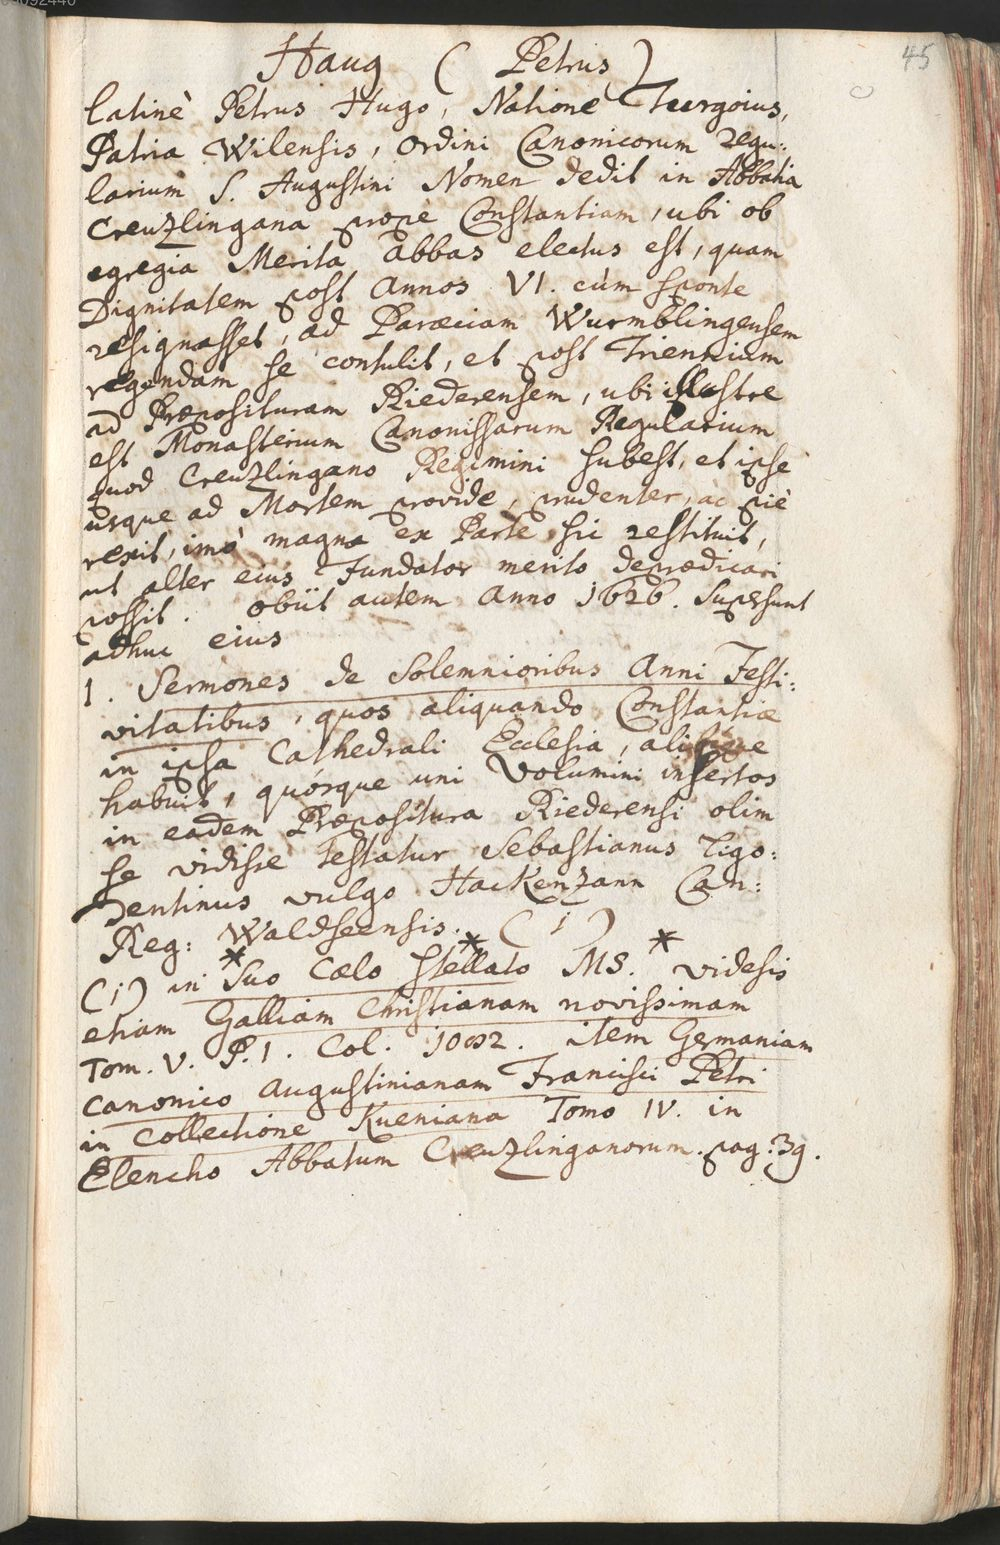 45
Haug ( Petrus )
latinè Petrus Hugo, Natione Turgoius,
Patria Wilensis, ordini Canonicorum regu:
larium S. Augustini Nomen dedit in Abbatia
Creuzlingana propè Constantiam, ubi ob
egregia Merita abbas electus est, quam
Dignitatem post annos VI. cùm sponte
resignasset, ad Paræciam Wurmblingensem
regendam se contulit, et post Triennium
ad Præposituram Riederensem, ubi illustre
est Monasterium Canonissarum Regularium
quod Creuzlingano Regimini subest, et ipse
usque ad Mortem provide, prudenter, ac piè
rexit, imò magna ex Parte sic restituit,
ut alter eius Fundator merito deprædicari
possit. obiit autem anno 1626. Supersunt
adhuc eius
1. Sermones de Solemnioribus Anni Festi:
vitatibus, quos aliquando Constantiæ
in ipsa Cathedrali Ecclesia,
habuit, quósque uni Volumini insertos
in eadem Præpositura Riederensi olim
se vidisse testatur Sebastianus Ligo:
Dentinus vulgo Hackenzann Can:
Reg: Waldseensis. (1)
(1) in * Suo Cælo stellato * MS. * videsis
etiam Galliam Christianam novissimam
Tom. V. P. 1. Col. item Germaniam
canonico augustinianam Francisci Petri
in Collectione Kueniana Tomo IV. in
Elencho Abbatum Creuzlinganorum. pag. 39.